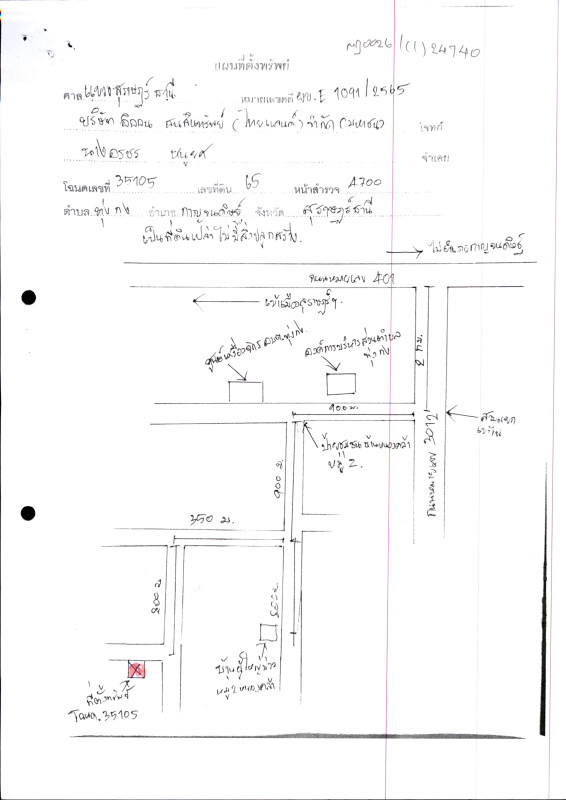 ผญ0026/(1)24740
แผนที่ตั้งทรัพย์
ศาล แขวงสุราษฎร์ธานี หมายเลขคดี ผบ.E 1091/2565
บริษัท สินทรัพย์ (ไทยแลนด์) จำกัด (มหาชน) โจทก์
จำเลย
โฉนดเลขที่ 35105 เลขที่ดิน 65 หน้าสำรวจ 4700
ตำบล ทุ่งกง อำเภอ กาญจนดิษฐ์ จังหวัด สุราษฎร์ธานี
เป็นที่ดินเปล่าไม่มีสิ่งปลูกสร้าง.
ไปอำเภอกาญจนดิษฐ์
ถนนหมายเลข 401
เข้าเมืองสุราษฎร์ฯ.
ศูนย์เครื่องจักร อบต.ทุ่งกง.
องค์การบริหารส่วนตำบล
ทุ่งกง
2 กม.
900 ม.
สามแยก
ถนนหมายเลข 3012
ป้ายชุมชนบ้านหนองคล้า
หมู่ 2.
900 ม.
350 ม.
800 ม.
500 ม.
บ้านผู้ใหญ่
หมู่ 2 หนองคล้า
ที่ตั้งทรัพย์
โฉนด.35105